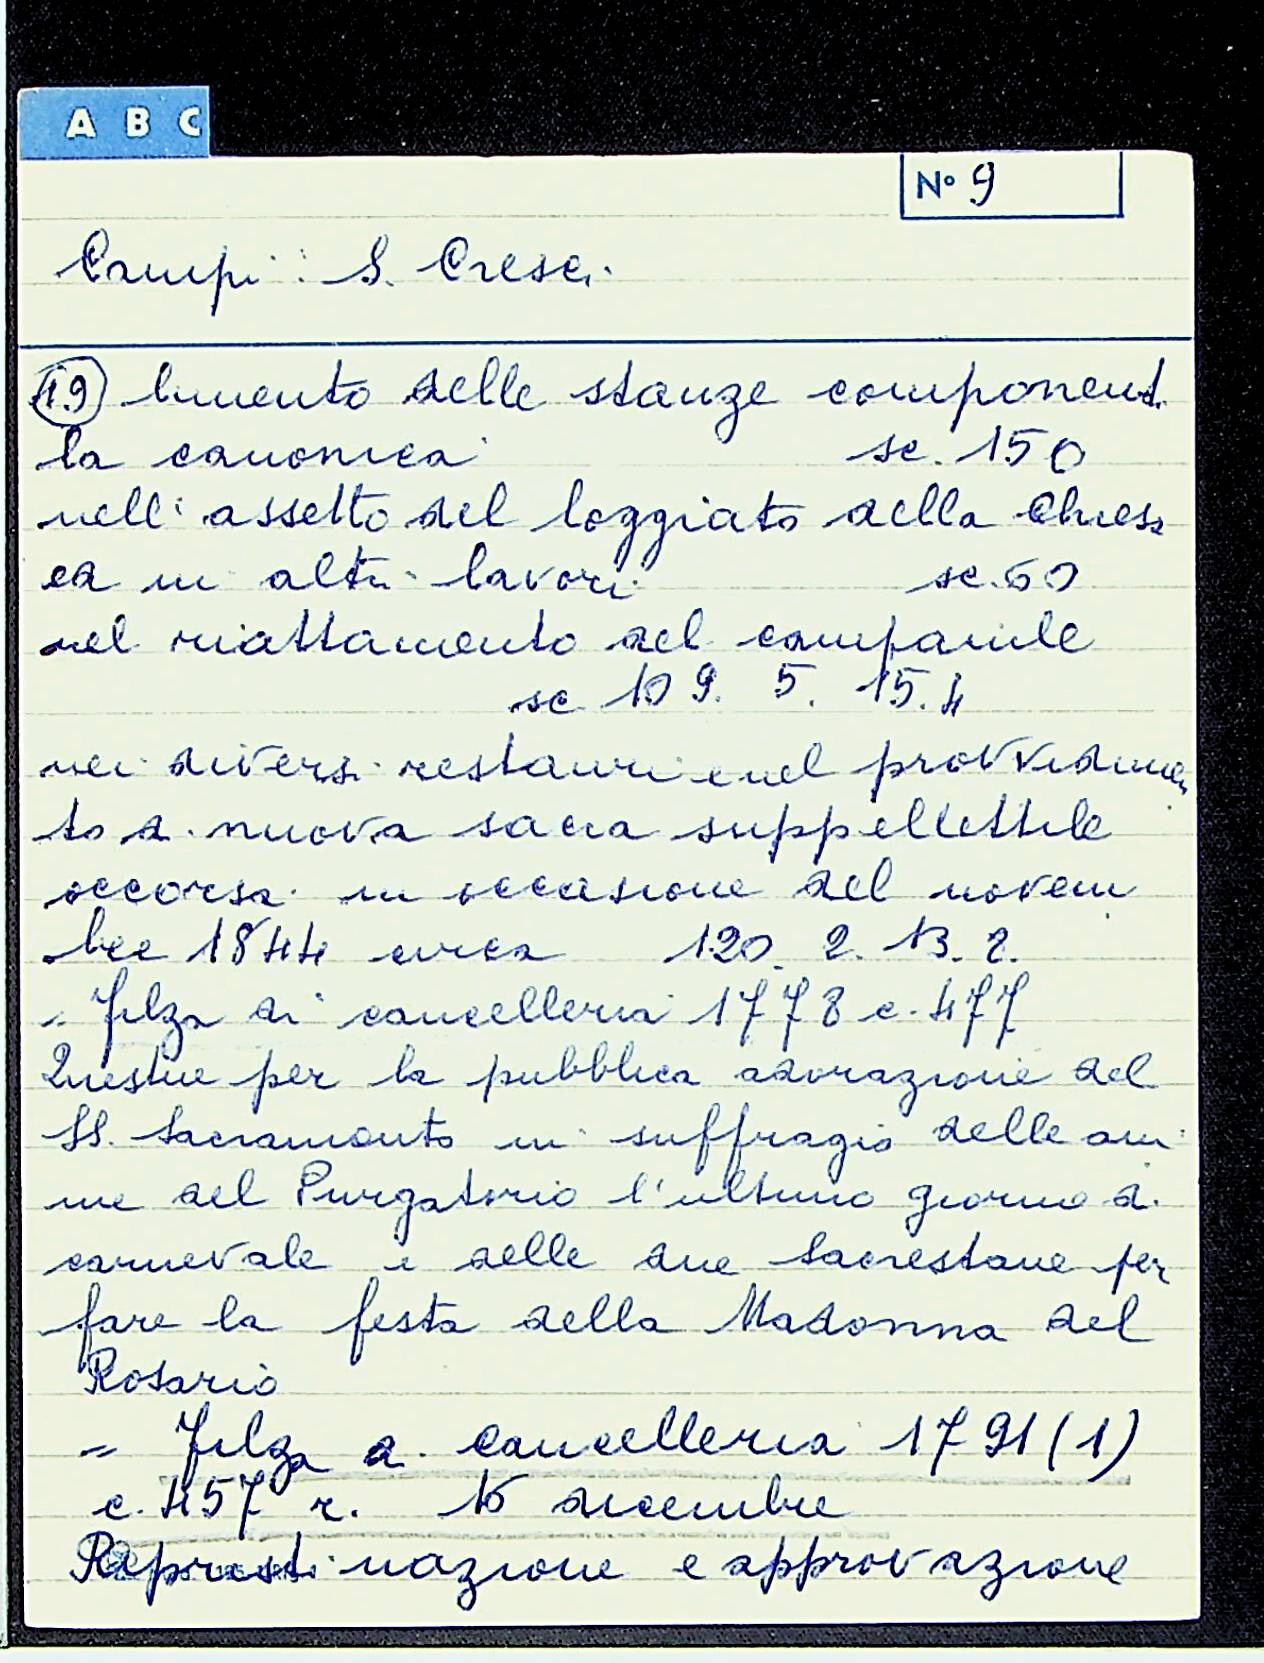 A B C
N° 9
Campi: S. Cresci
19) limento delle stanze componenti
la canonica sc. 150
nell'assetto del loggiato della Chiesa
ed in altri lavori sc. 60
nel riattamento del campanile
sc. 109. 5. 15. 4
nei diversi restauri e nel provvedimen
to di nuova sacra suppellettile
occorsi in occasione del novem
bre 1844 circa 120. 2. 13. 2.
- Filza di cancelleria 1778 c. 477
Questue per la pubblica adorazione del
SS. Sacramento in suffragio delle ani
me del Purgatorio l'ultimo giorno di
carnevale e delle due Sacrestane per
fare la festa della Madonna del
Rosario
- Filza di cancelleria 1791 (1)
c. 457 r. 16 dicembre
Ripristinazione e approvazione